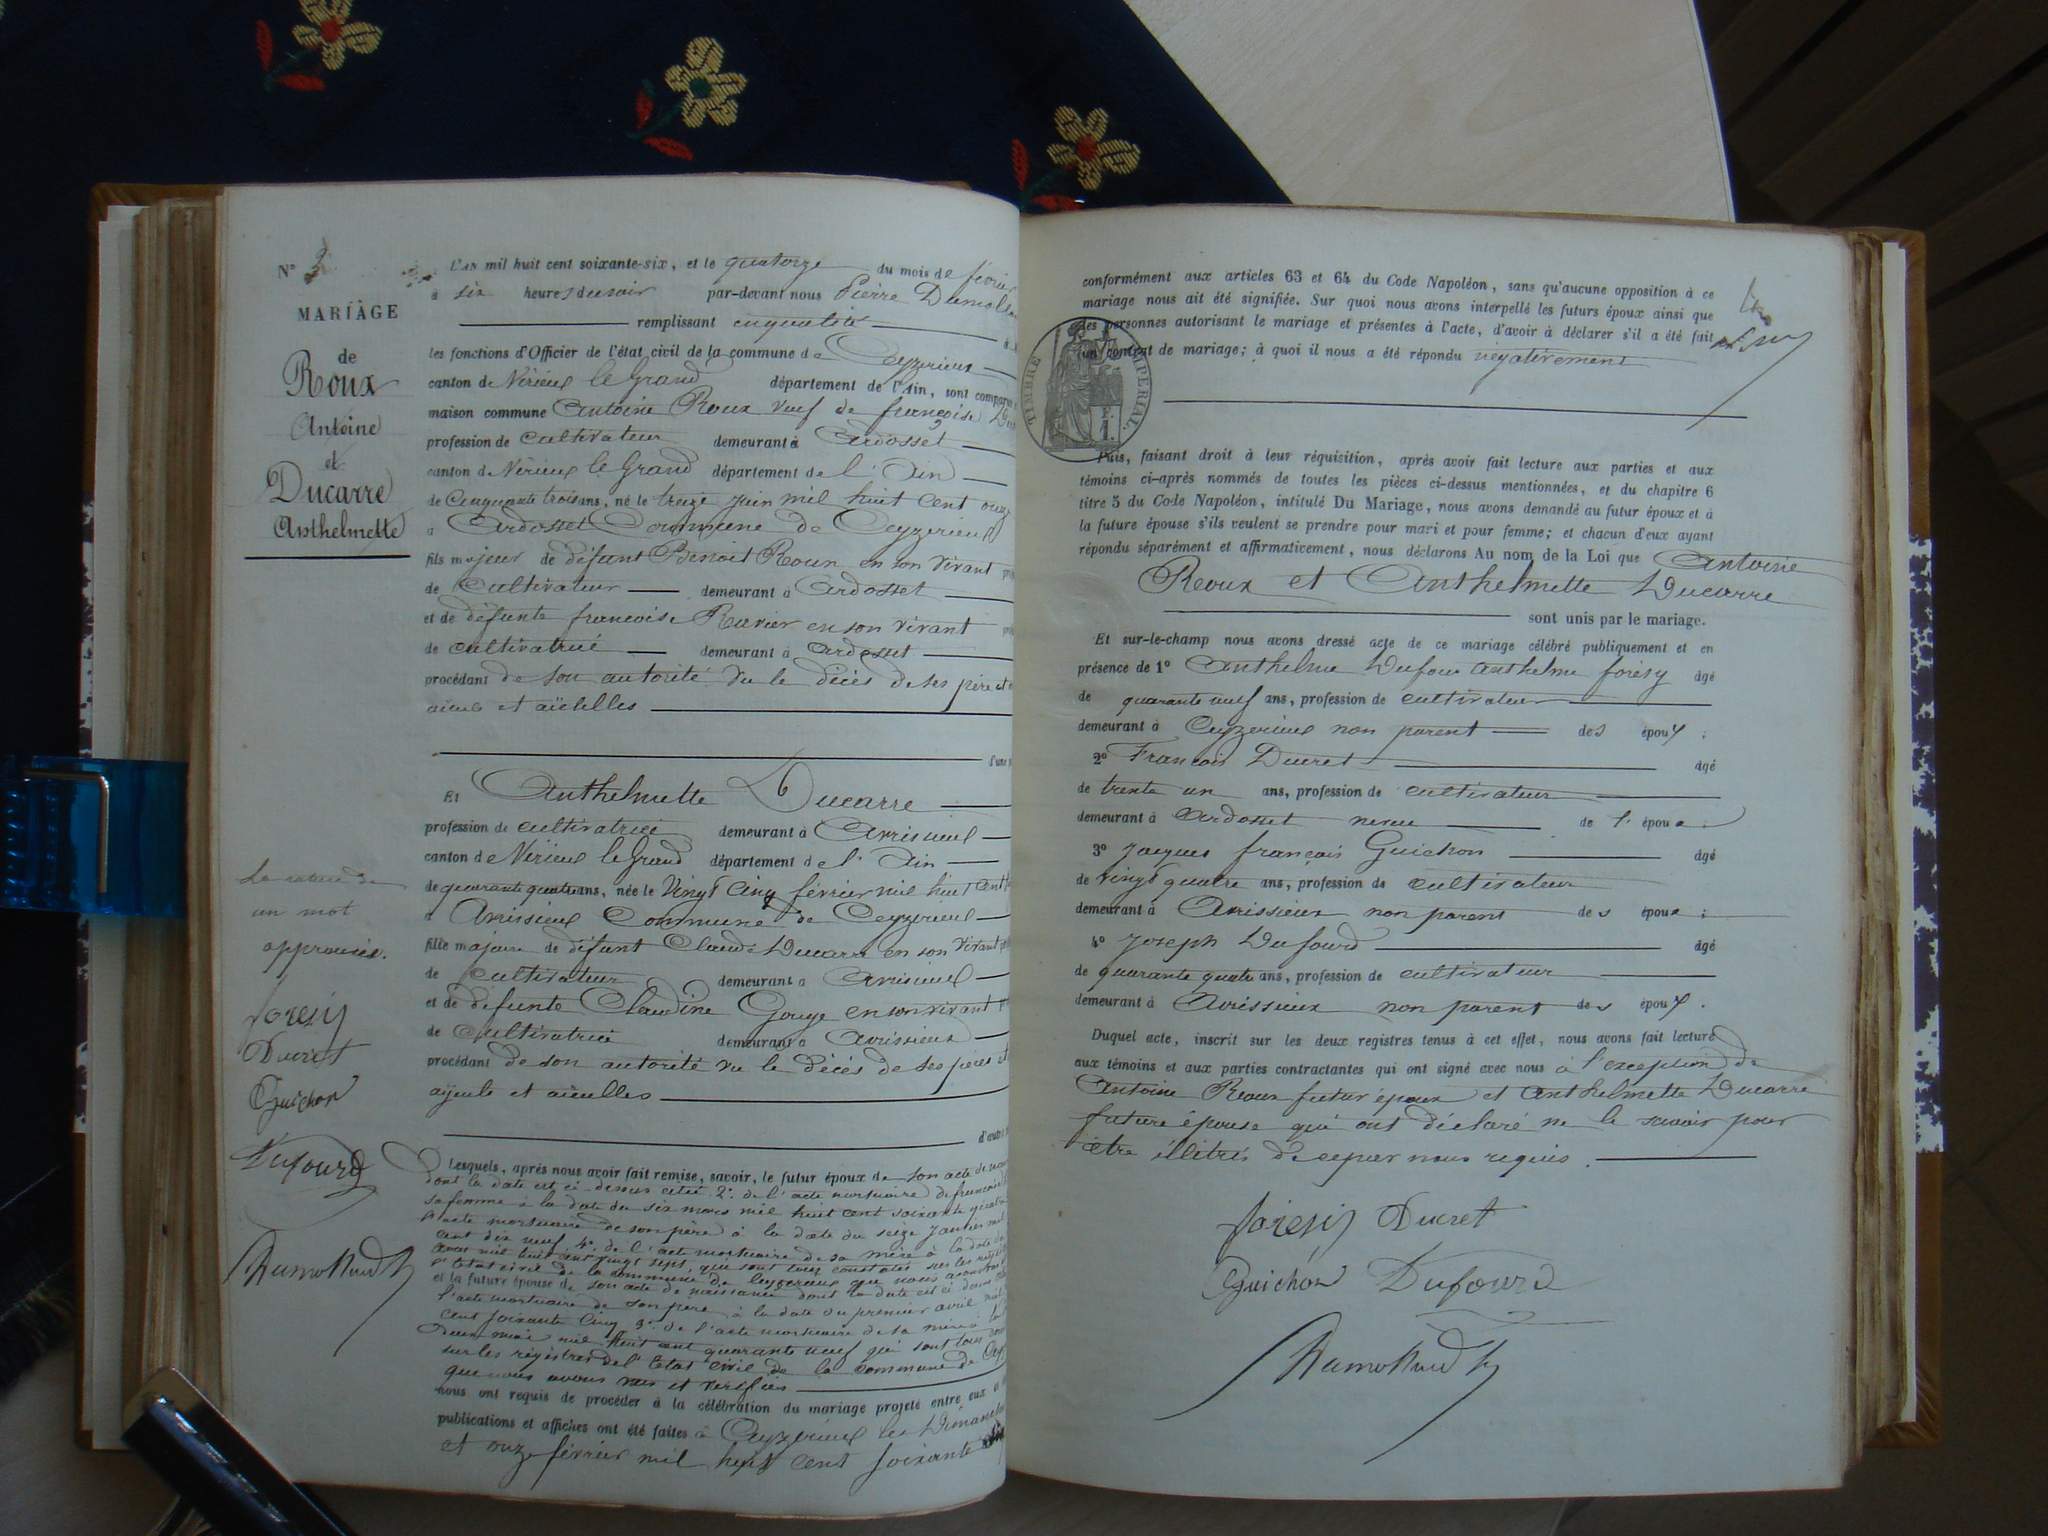 N° 3
MARIAGE
de
Roux
Antoine
et
Ducarre
Anthelmette
L'AN mil huit cent soixante-six, et le quatorze du mois de février
à six heures du soir par-devant nous Pierre
remplissant en qualité
les fonctions d'Officier de l'état civil de la commune de Ceyzerieux
canton de Virieux le Grand département de l'Ain, sont comparus
maison commune Antoine Roux veuf de françoise
profession de cultivateur demeurant à Ardosset
canton de Virieux le Grand département de l'Ain
de Cinquante trois ans, né le treize juin mil huit cent onze
à Ardosset Commune de Ceyzerieux
fils majeur de défunt Benoit Roux en son vivant
de Cultivateur demeurant à Ardosset
et de défunte francoise Ravier en son vivant
de cultivatrice demeurant à Ardosset
procédant de son autorité vu le décès de ses père et
aieuls et aïeulles
d'une
Et Anthelmette Ducarre
profession de cultivatrice demeurant à Avrisieux
canton de Virieux le Grand département de l'Ain
de quarante quatre ans, née le vingt cinq février mil huit cent
à Avrissieux Commune de Ceyzerieux
fille majeure de défunt Claude Ducarre en son vivant
de cultivateur demeurant à Avrisieux
et de défunte Claudine Gouge en son vivant
de cultivatrice demeurant à Avrissieux
procédant de son autorité vu le décès de ses pères et
ayeuls et aïeulles
d'autre
Lesquels, après nous avoir fait remise, savoir, le futur époux de son acte de
dont la date est ci-dessus citée 2°. de l'acte mortuaire de francoise
sa femme à la date du six mars mil huit cent soixante
l'acte mortuaire de son père à la date du seize janvier mil
cent dix neuf 4°. de l'acte mortuaire de sa mère à la date du
mil huit cent vingt sept, qui sont tous constatés sur les
l'Etat civil de la commune de Ceyzerieux que nous avons
et la future épouse de son acte de naissance dont la date est ci dessus
l'acte mortuaire de son père à la date du premier avril mil
cent soixante cinq 3°. de l'acte mortuaire de sa mère à la
Deux mai mil huit cent quarante neuf qui sont tous
sur les régistres de l'Etat civil de la commune de
que nous avons vus et vérifiés
nous ont requis de procéder à la célébration du mariage projeté entre eux
publications et affiches ont été faites à Ceyzerieux les Dimanches
et onze février mil huit cent soixante
un mot
approuvée.
Foresy
Ducret
Guichon
Dufourd
conformément aux articles 63 et 64 du Code Napoléon, sans qu'aucune opposition à ce
mariage nous ait été signifiée. Sur quoi nous avons interpellé les futurs époux ainsi que
les personnes autorisant le mariage et présentes à l'acte, d'avoir à déclarer s'il a été fait
un contrat de mariage; à quoi il nous a été répondu négativement
TIMBRE IMPERIAL
F.
1.
Puis, faisant droit à leur réquisition, après avoir fait lecture aux parties et aux
témoins ci-après nommés de toutes les pièces ci-dessus mentionnées, et du chapitre 6
titre 5 du Code Napoléon, intitulé Du Mariage, nous avons demandé au futur époux et à
la future épouse s'ils veulent se prendre pour mari et pour femme; et chacun d'eux ayant
répondu séparément et affirmativement, nous déclarons Au nom de la Loi que Antoine
Roux et Anthelmette Ducarre
sont unis par le mariage.
Et sur-le-champ nous avons dressé acte de ce mariage célébré publiquement et en
présence de 1° Anthelme Dufour anthelme forésy âgé
de quarante neuf ans, profession de cultivateur
demeurant à Ceyzerieux non parent des époux ;
2° François Ducret âgé
de trente un ans, profession de cultivateur
demeurant à Ardosset neveu de l'épou
3° Jacques françois Guichon âgé
de vingt quatre ans, profession de cultivateur
demeurant à Avrissieux non parent des époux ;
4° Joseph Dufourd âgé
de quarante quatre ans, profession de cultivateur
demeurant à Avrissieux non parent des époux .
Duquel acte, inscrit sur les deux registres tenus à cet effet, nous avons fait lecture
aux témoins et aux parties contractantes qui ont signé avec nous à l'exception de
Antoine Roux futur époux et Anthelmette Ducarre
future épouse qui ont déclaré ne le savoir pour
être illétrés de ce par nous requis.
Foresy Ducret
Guichon Dufourd